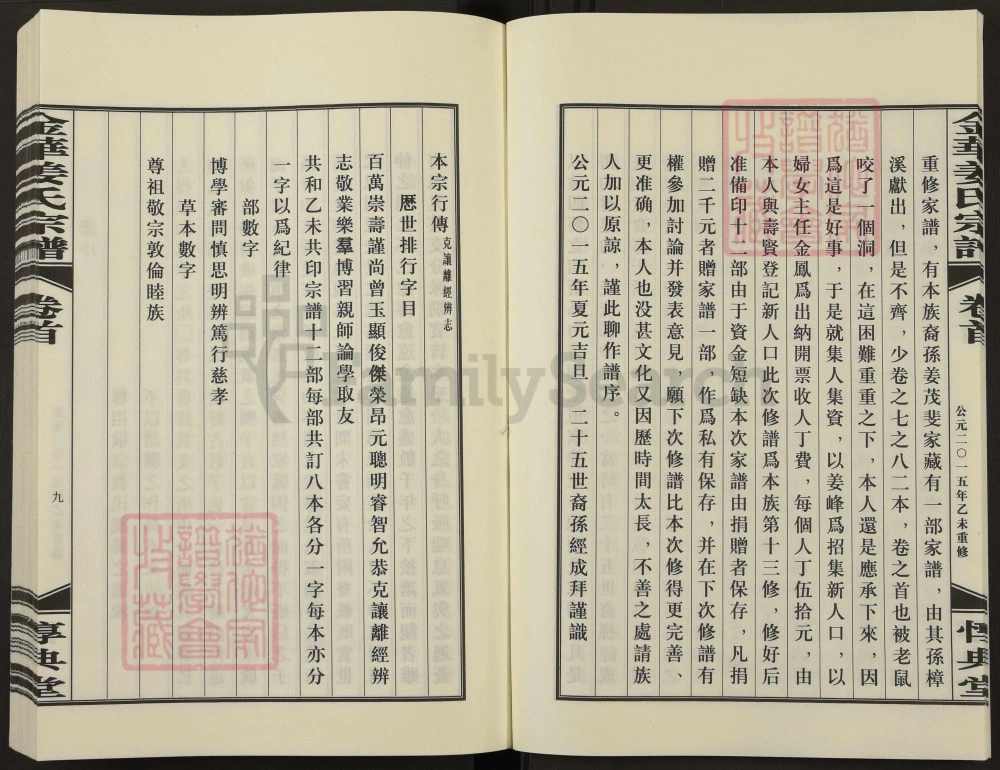 金華姜氏宗譜
卷首
公元二〇一五年乙未重修
惇典堂
重修家譜，有本族裔孫姜茂斐家藏有一部家譜，由其孫樟
溪獻出，但是不齊，少卷之七之八二本，卷之首也被老鼠
咬了一個洞，在這困難重重之下，本人還是應承下來，因
爲這是好事，于是就集人集資，以姜峰爲招集新人口，以
婦女主任金鳳爲出納開票收人丁費，每個人丁伍拾元，由
本人與壽賢登記新人口此次修譜爲本族第十三修，修好后
准備印十二部由于資金短缺本次家譜由捐贈者保存，凡捐
贈二千元者贈家譜一部，作爲私有保存，并在下次修譜有
權參加討論并發表意見，願下次修譜比本次修得更完善、
更准确，本人也没甚文化，因歷時間太長，不善之處請族
人加以原諒，謹此聊作譜序。
公元二〇一五年夏元吉旦 二十五世裔孫經成拜謹識
本宗行傳 克讓離經辨志
歷世排行字目
百萬崇壽謹尚曾玉顯俊傑榮昂元聰明睿智允恭克讓離經辨
志敬業樂羣博習親師論學取友
共和乙未共印宗譜十二部每部共訂八本各分一字每本亦分
一字以爲紀律
部數字
博學審問慎思明辨篤行慈孝
草本數字
尊祖敬宗敦倫睦族
金華姜氏宗譜
卷首
九
惇典堂
FamilySearch